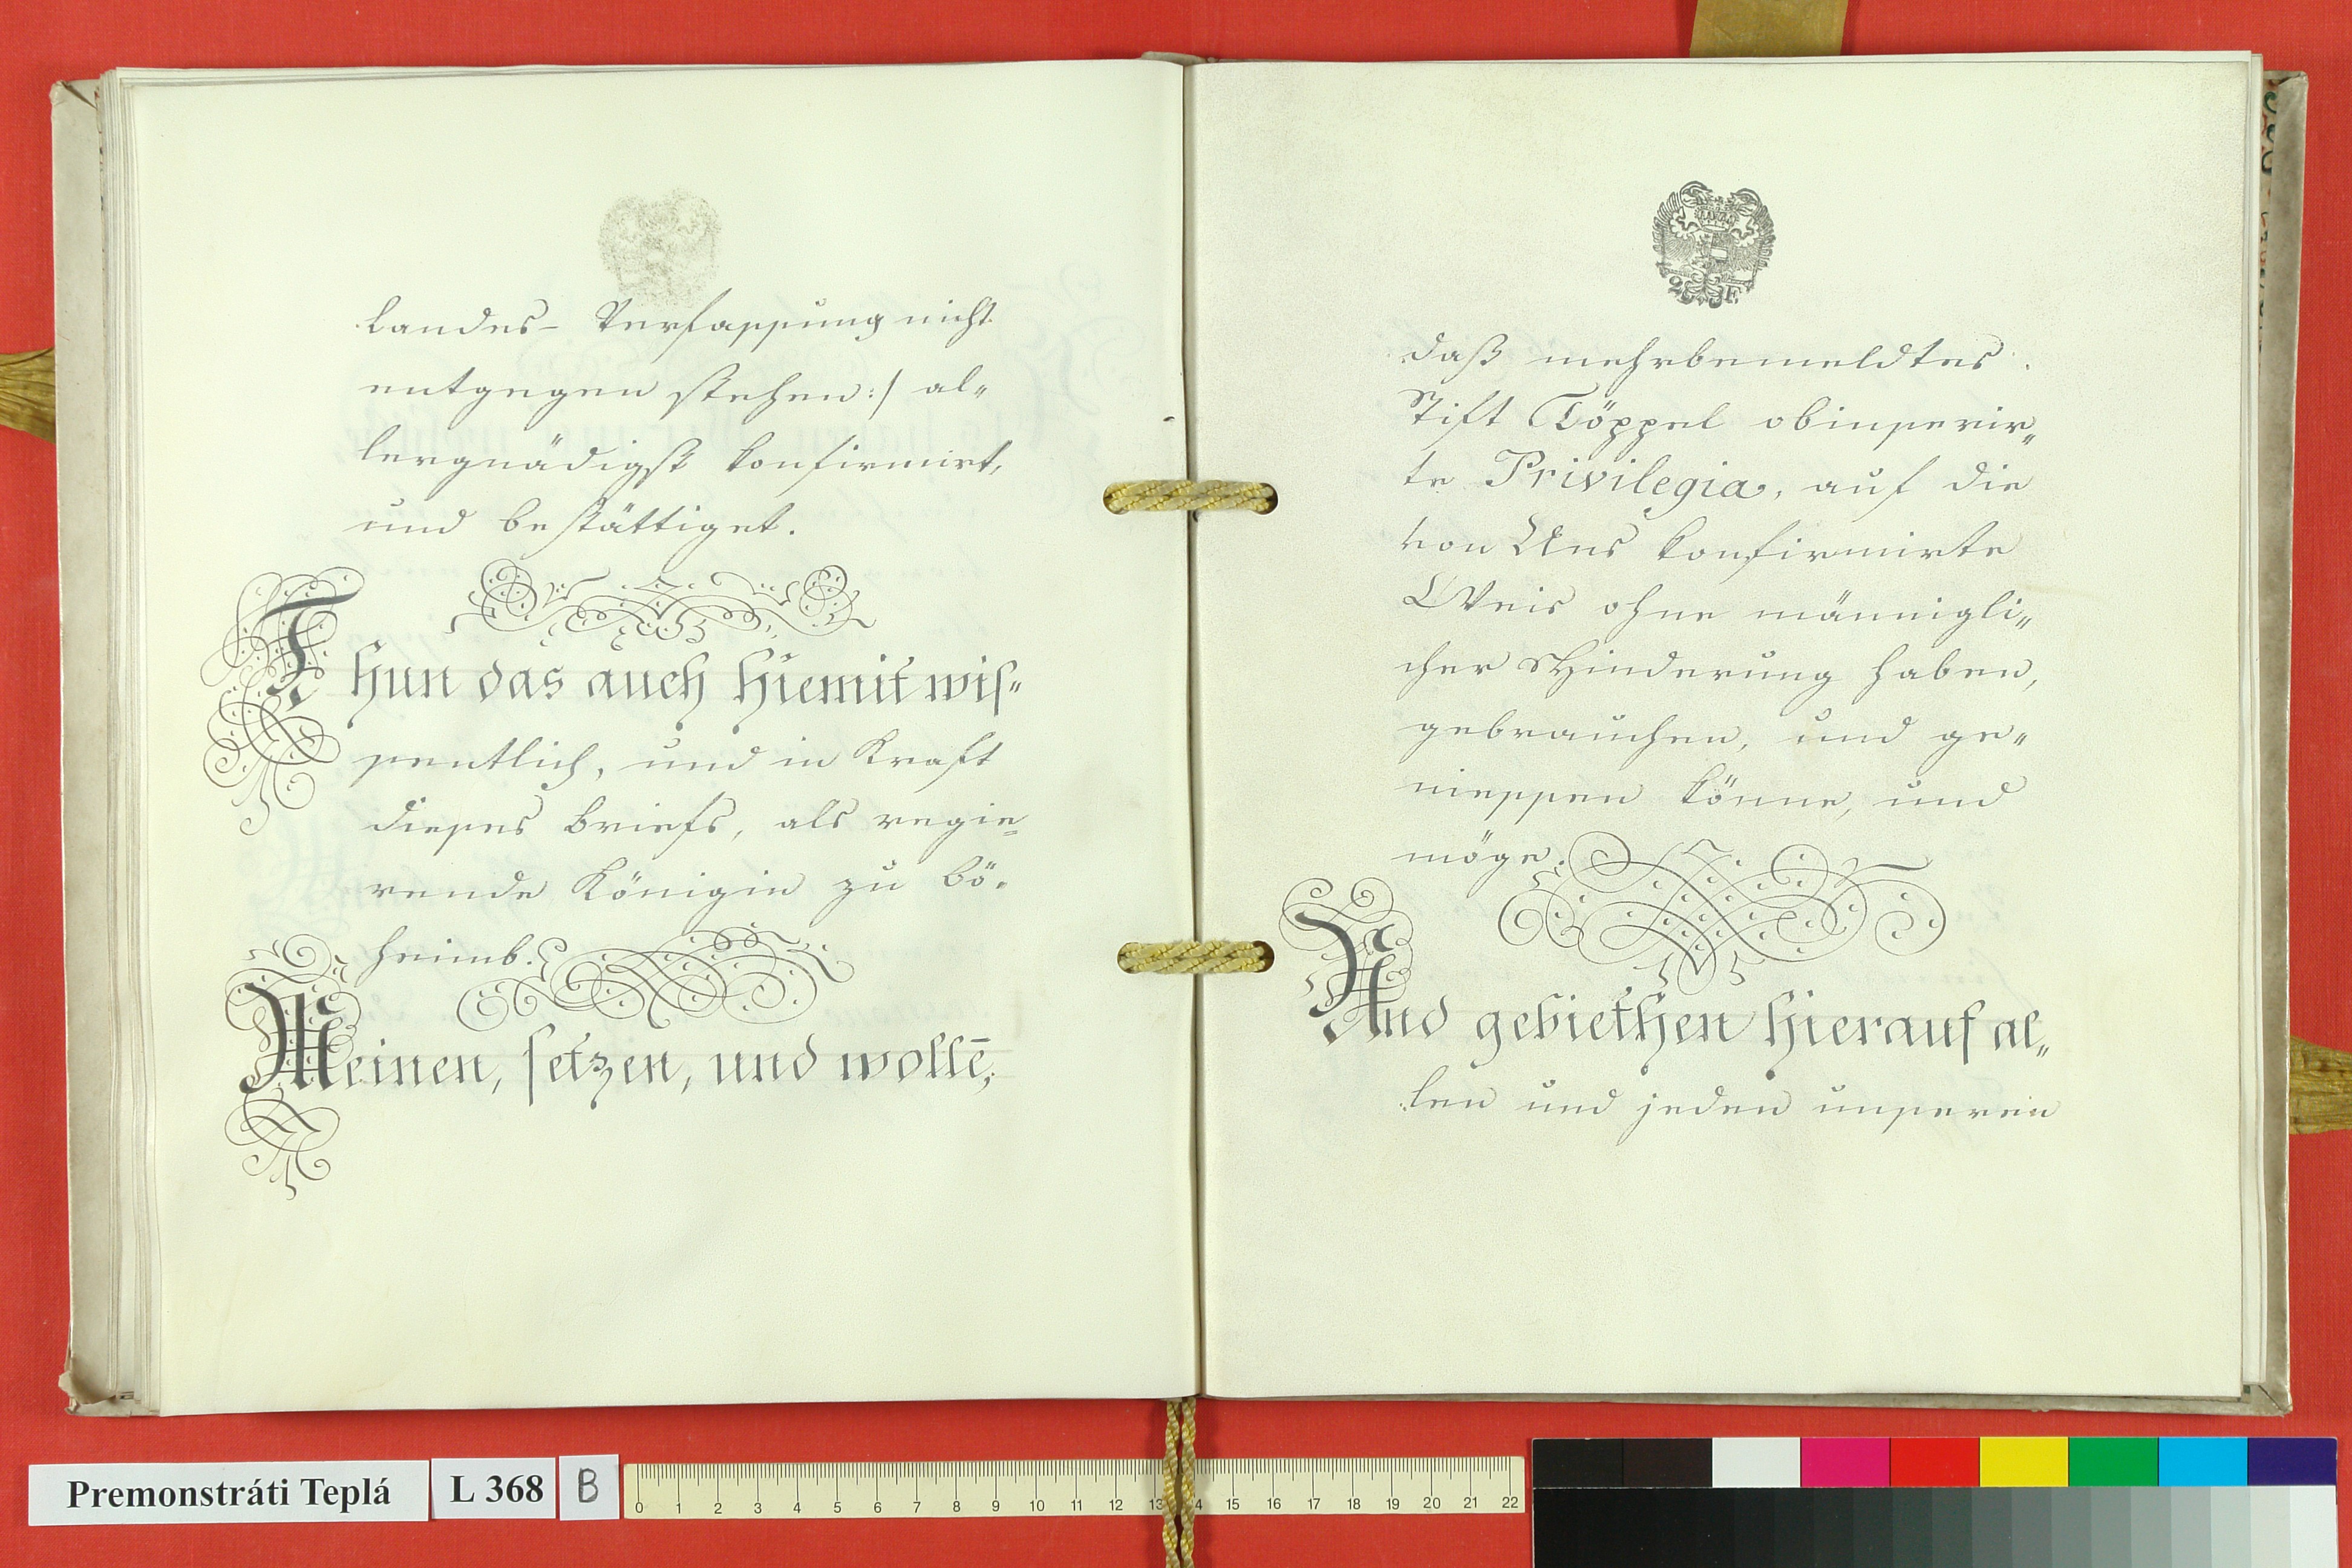 Landes- Verfassung nicht
entgegen stehen :/ al„
lergnädigst konfirmirt,
und bestättiget.
Thun das auch hiemit wis„
sentlich, und in Kraft
dieses Briefs, als regie=
rende Königin zu Bö„
heimb.
Meinen, setzen, und wollē,
daß mehrbemeldtes
Stift Töppel obinserir„
te Privilegia, auf die
von Uns konfirmirte
Weis ohne männigli„
cher Hinderung haben,
gebrauchen, und ge„
niessen könne, und
möge.
Und gebiethen hierauf al„
len und jeden unseren
Premonstráti Teplá L 368 B
0 1 2 3 4 5 6 7 8 9 10 11 12 13 14 15 16 17 18 19 20 21 22